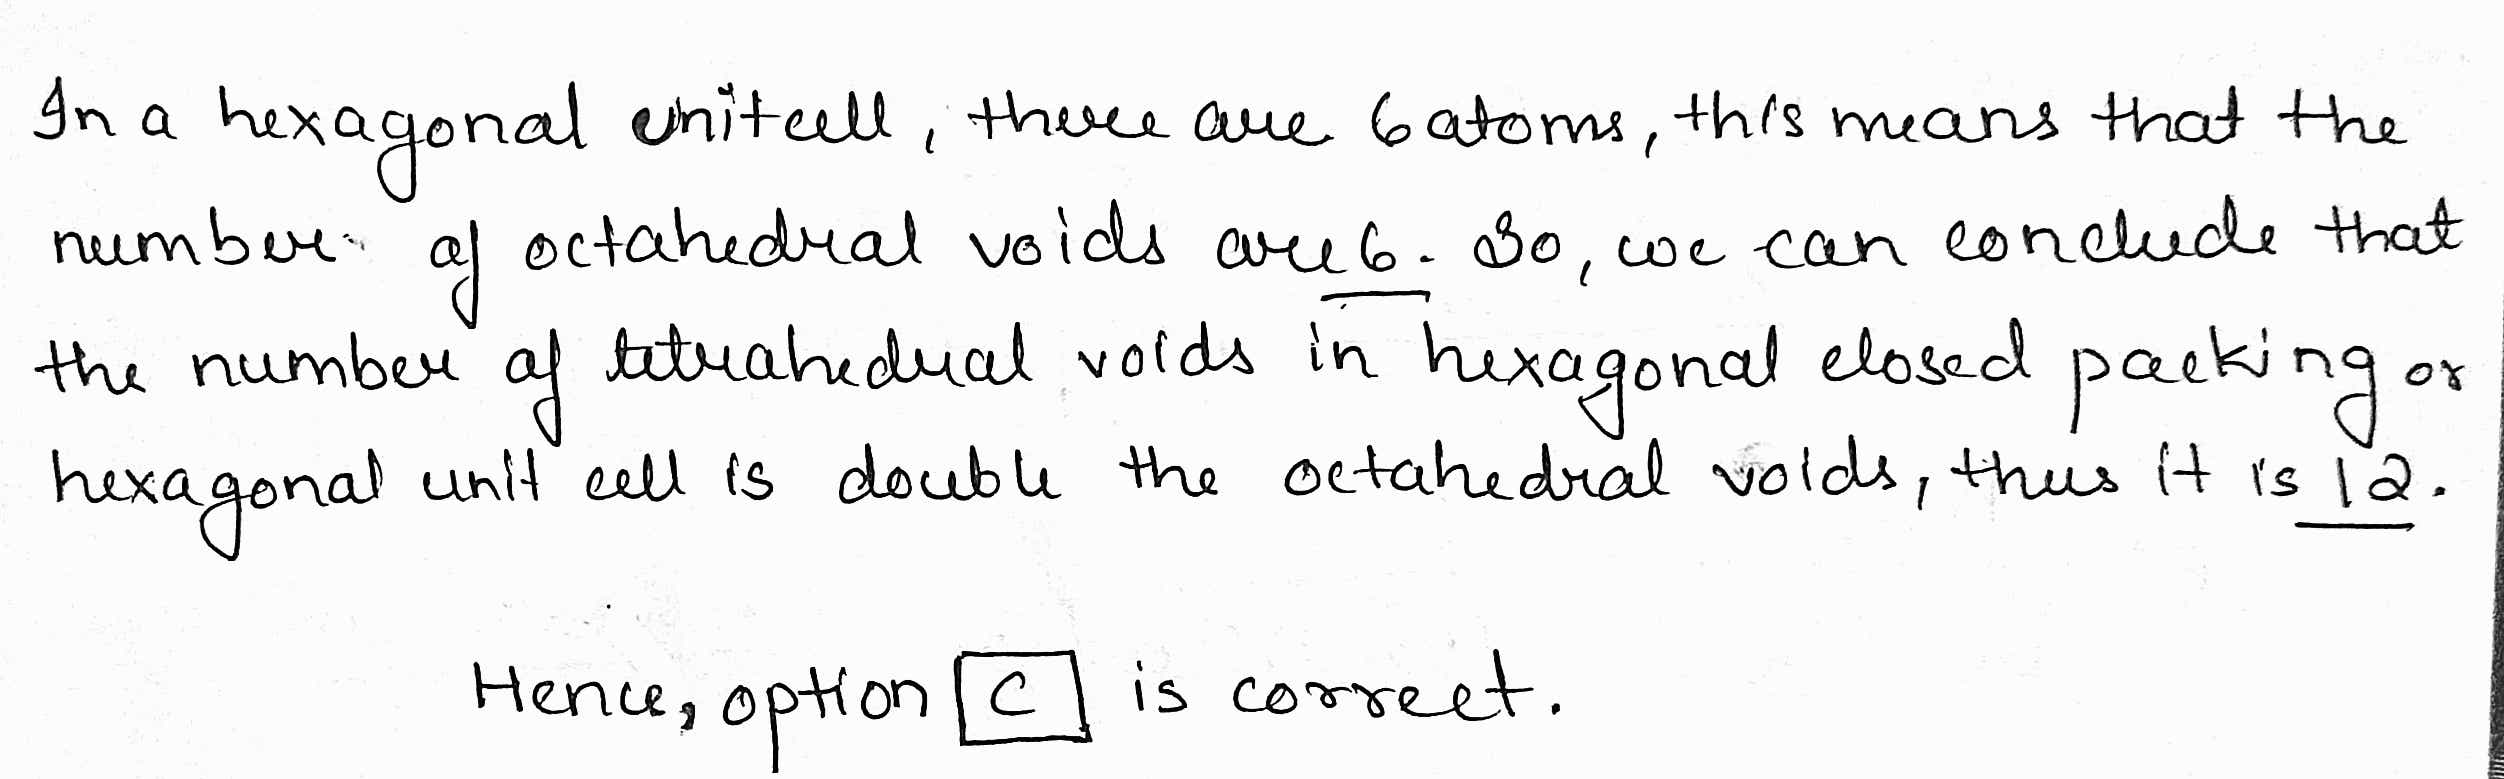 In a hexagonal unitcell, there are 6 atoms, this means that the
number of octahedral voids are 6. So, we can conclude that
the number of tetrahedral voids in hexagonal closed packing or
hexagonal unit cell is double the octahedral voids, thus it is 12.
Hence, option C is correct.